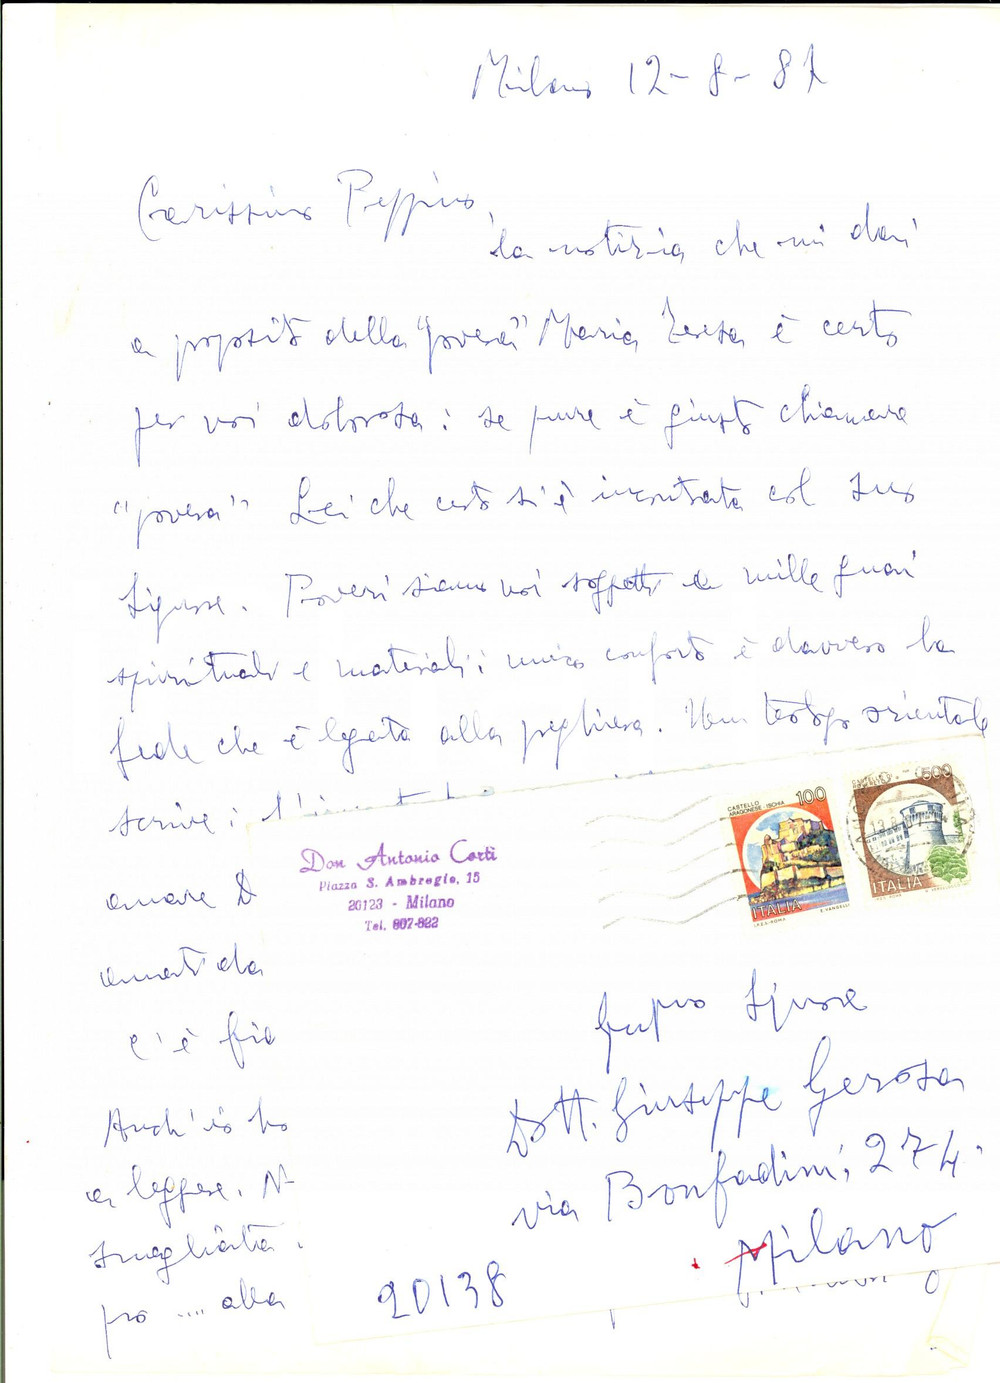 Milano 12-8-87
Carissimo Peppino,
la notizia che mi dai
a proposito della "povera" Maria Teresa è certo
per voi dolorosa: se pure è giusto chiamare
"povera" Lei che certo si è incontrata col suo
Signore. Poveri siamo noi soggetti a mille guai
spirituali e materiali; unico conforto è davvero la
fede che è legata alla preghiera. Un teologo orientale
scrive:
amare D
amati da
c'è
Anch'io ho
a leggere. N
smagliata.
pro .... alla
Don Antonio Corti
Piazza S. Ambrogio, 15
20123 - Milano
Tel. 807-822
CASTELLO
ARAGONESE ISCHIA
100
ITALIA
I.P.Z.S.-ROMA E.VANGELLI
500
ITALIA
Gent.mo Signore
Dott. Giuseppe Gerosa
via Bonfadini, 274
Milano
20138